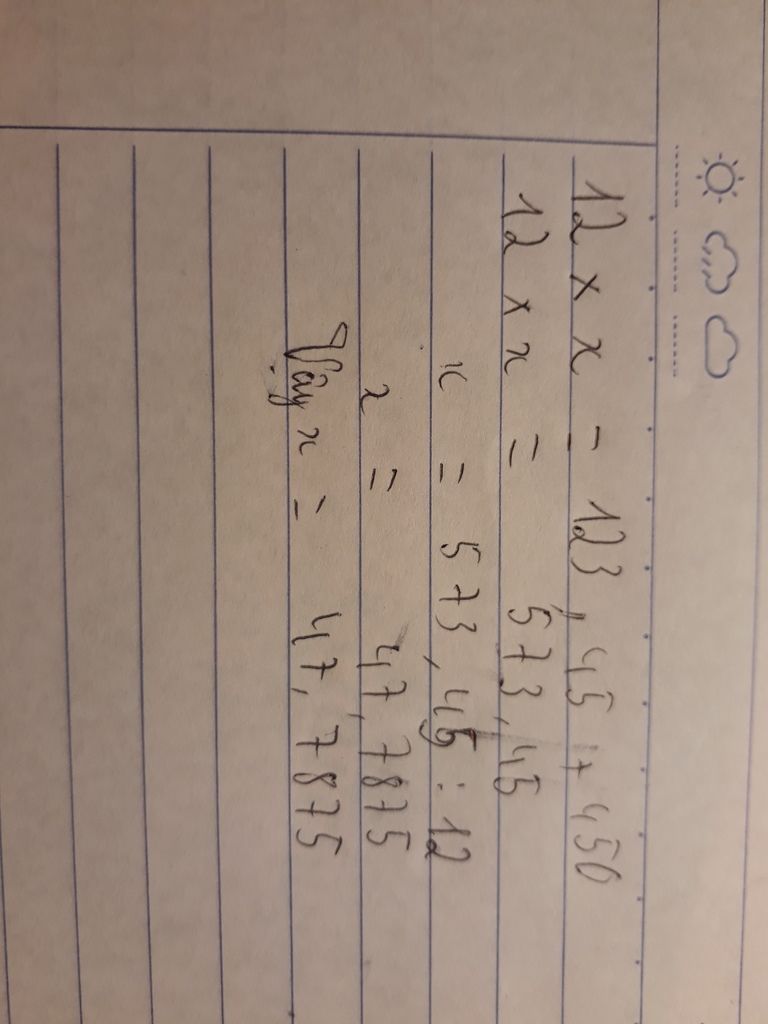 12 × x = 123,45 + 450
12 × x = 573,45
x = 573,45 : 12
x = 47,7875
Vậy x = 47,7875